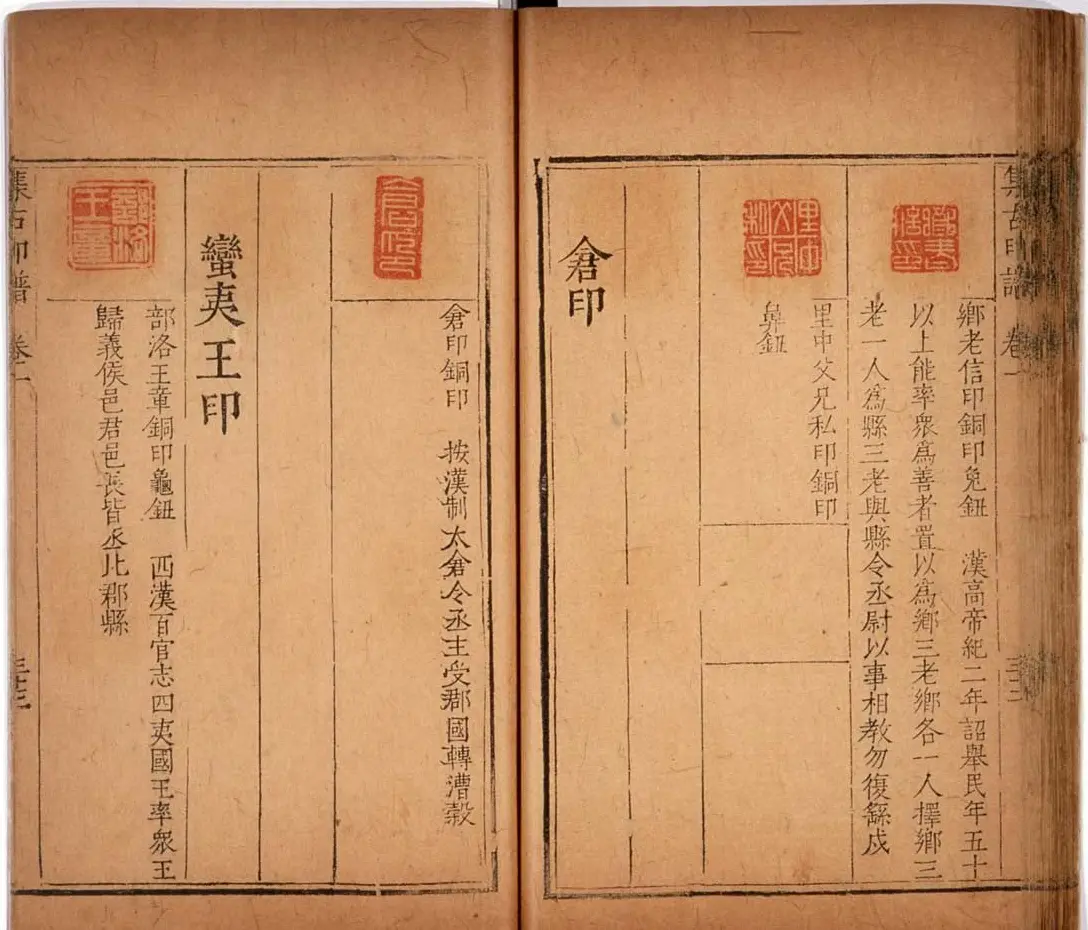 集古印譜 卷一
鄉老信印銅印兔鈕 漢高帝紀二年詔舉民年五十
以上能率衆爲善者置以爲鄉三老鄉各一人擇鄉三
老一人爲縣三老與縣令丞尉以事相教勿復繇戍
里中父兄私印銅印
鼻鈕
倉印
倉印
倉印銅印 按漢制太倉令丞主受郡國轉漕穀
蠻夷王印
部洛王章銅印龜鈕 西漢百官志四夷國王率衆王
歸義侯邑君邑長皆丞比郡縣
集古印譜 卷一